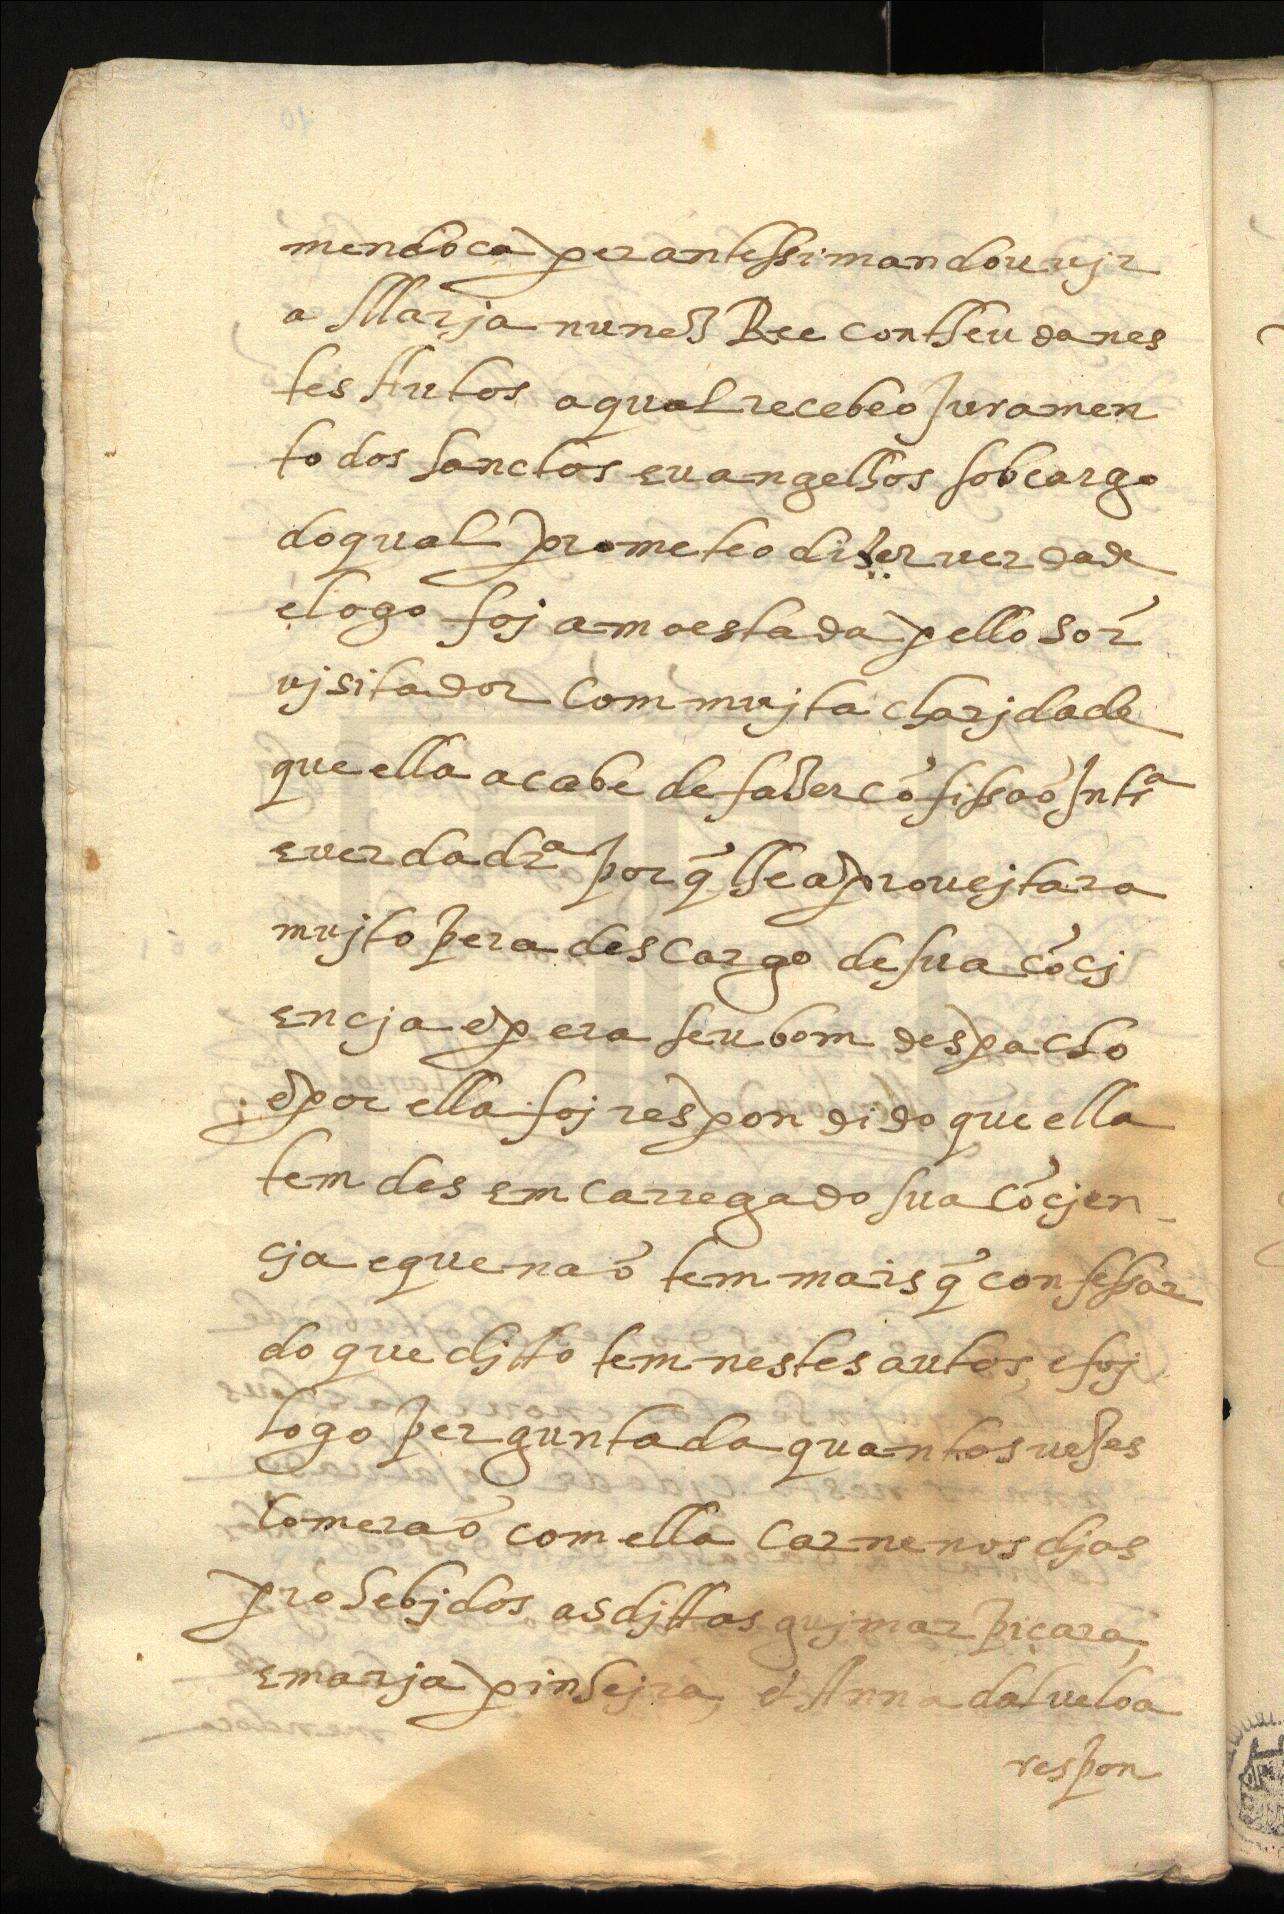 mendoca perantessi mandou vjr
a Marja nunes Ree contheuda nes
tes Autos a qual recebeo Juramen
to dos sanctos euangelhos sob cargo
do qual prometeo dizer verdade
e logo foj amoestada pello sor
vjsitador com mujta charjdade
que ella acabe de fazer cõfissaõ Intrª
e verdadrª porq̃ lhe aprovejtara
mujto pera descargo de sua cõcj
encja e pera seu bom despacho
e por ella foj respondido que ella
tem desemcarregado sua cõcjen
cja e que naõ tem mais q̃ confessar
do que djtto tem nestes autos e foj
logo perguntada quantas vezes
comeraõ com ella carne nos djas
prohebjdos as djttas gujmar piçara,
e marja pinhejra, e Anna dalveloa
respon